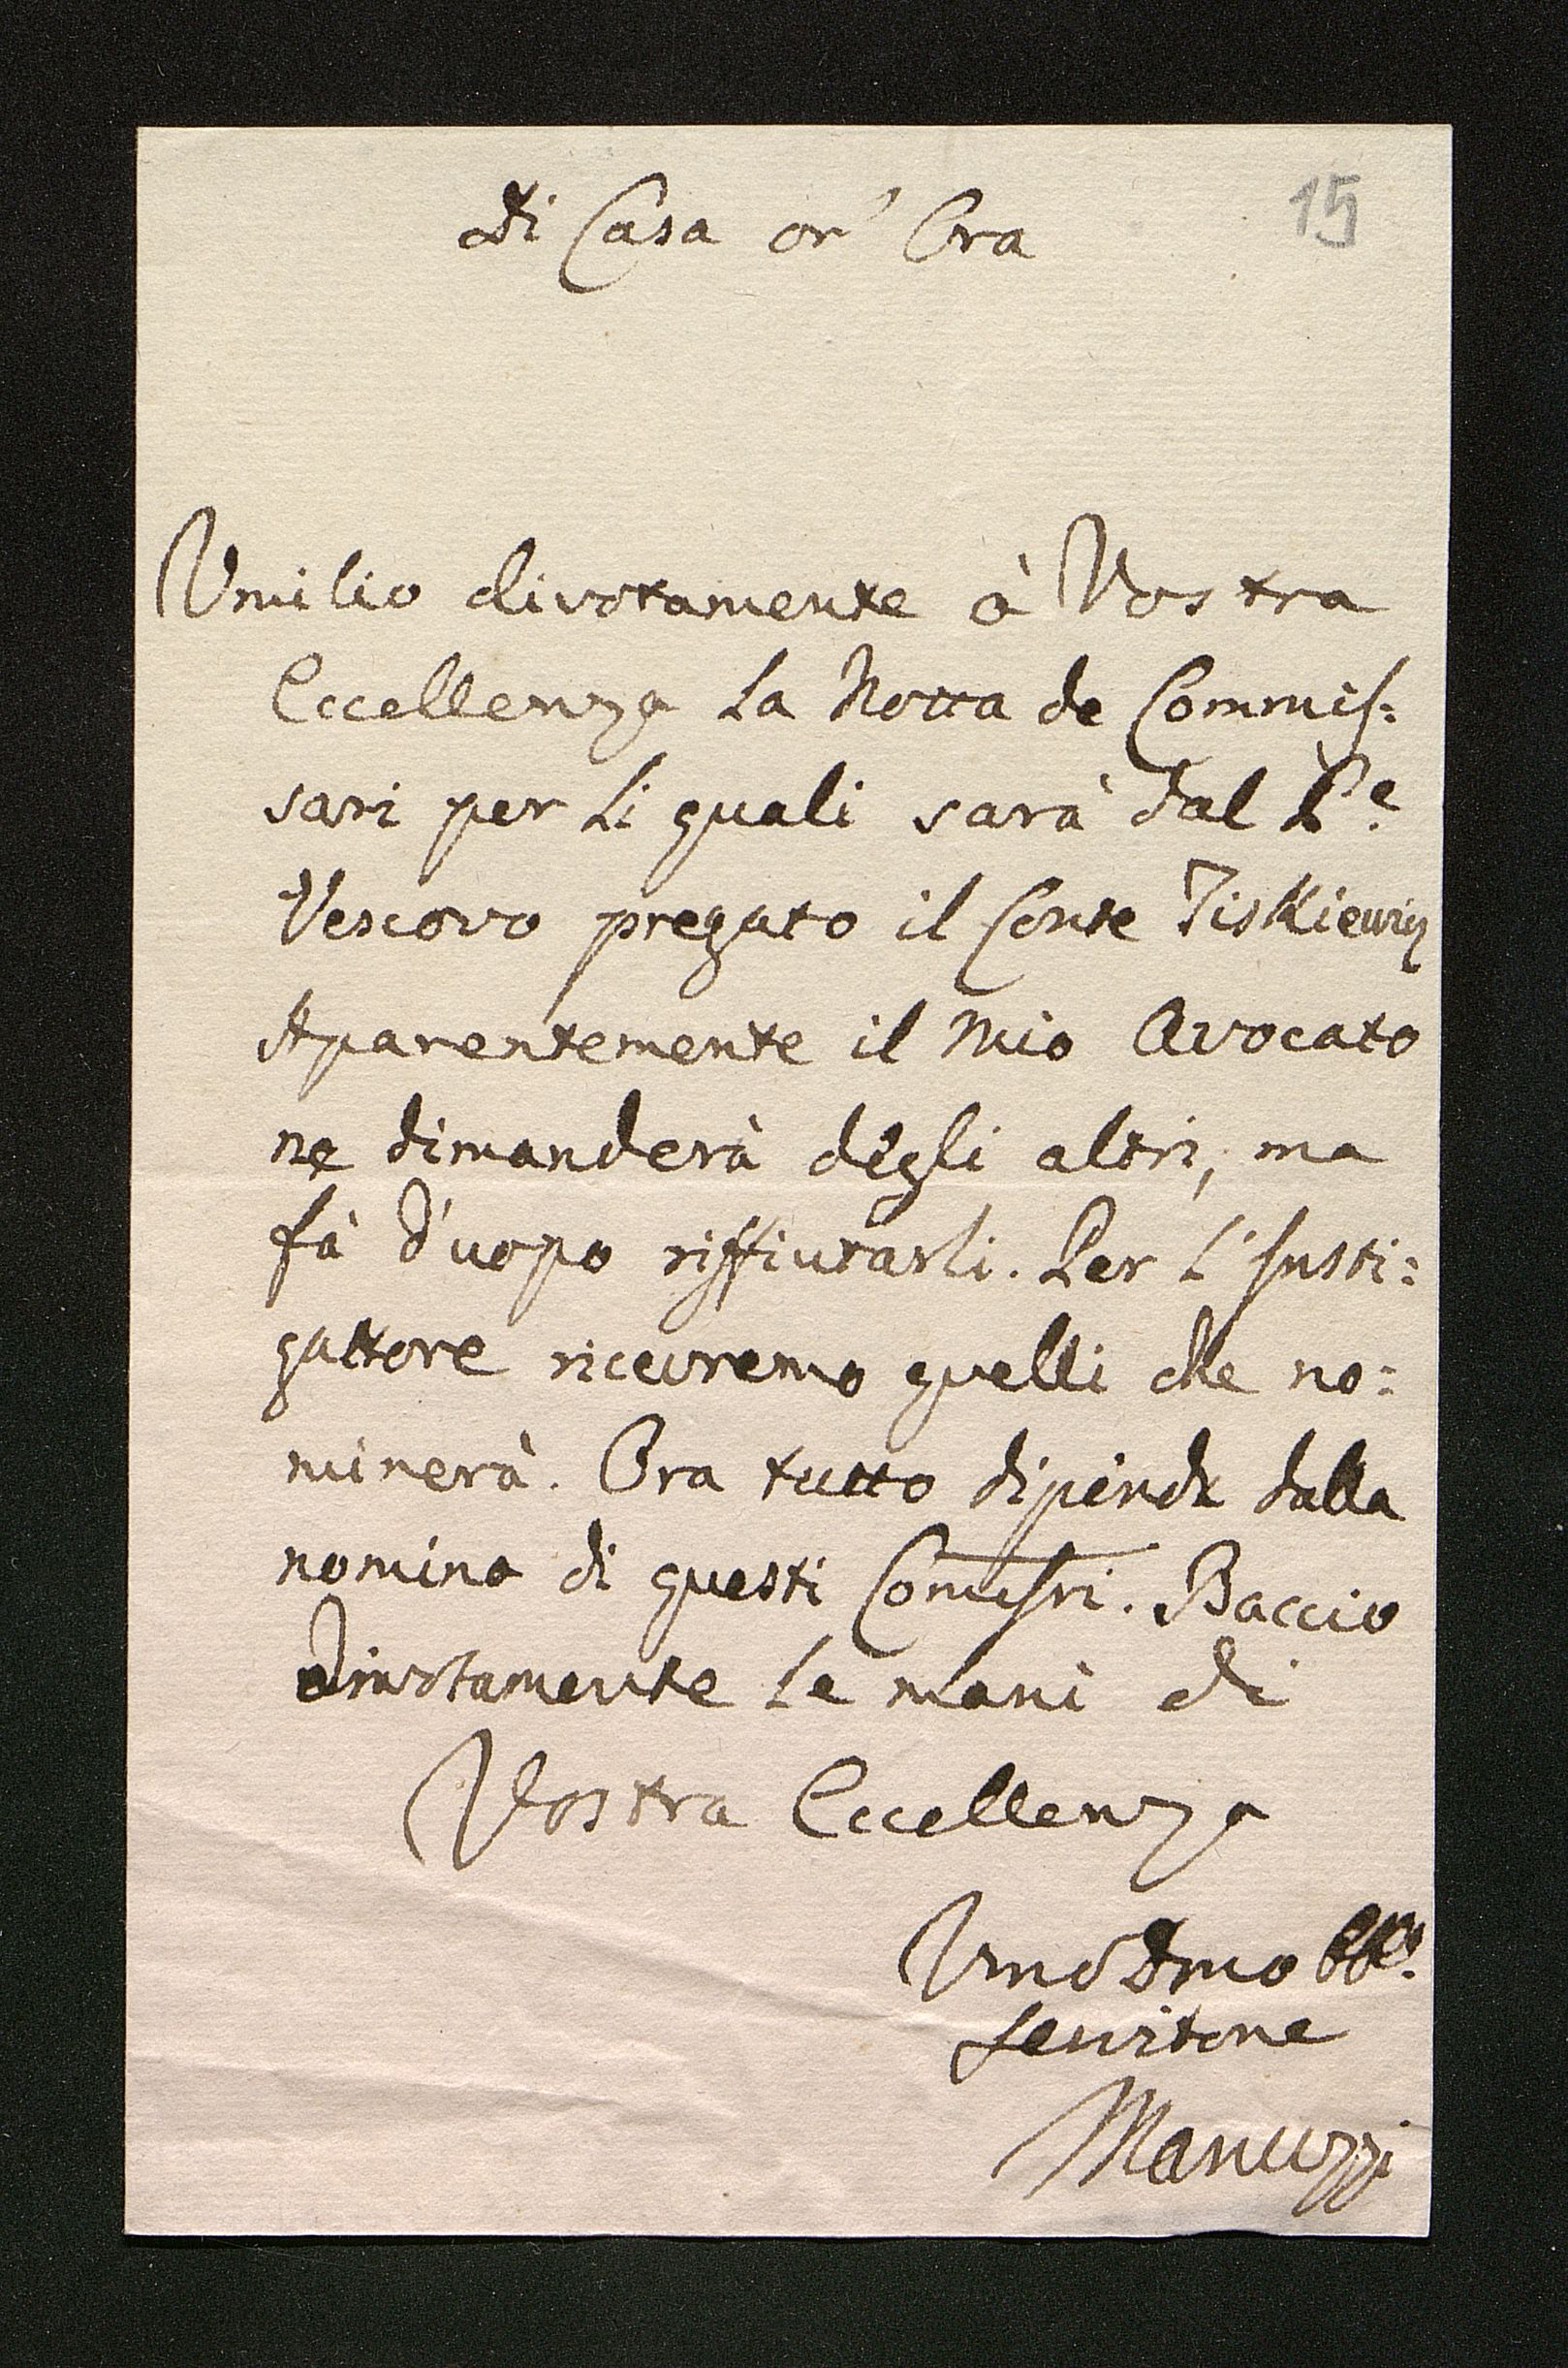 Di Casa or' Ora
15
Umilio divotamente à Vostra
Eccellenza La Notta de Commis:
sari per Li quali sarà dal P.e
Vescovo pregato il Conte Tiskiewicz
Aparentemente il Mio Avocato
ne dimanderà degli altri, ma
fà d'uopo riffiutarli. Per L'Insti:
gattore ricevremo quelli che no:
minerà. Ora tutto dipende dalla
nomina di questi Comissri. Baccio
Divotamente Le mani di
Vostra Eccellenza
Umo Dmo
Servitore
Manuzzi